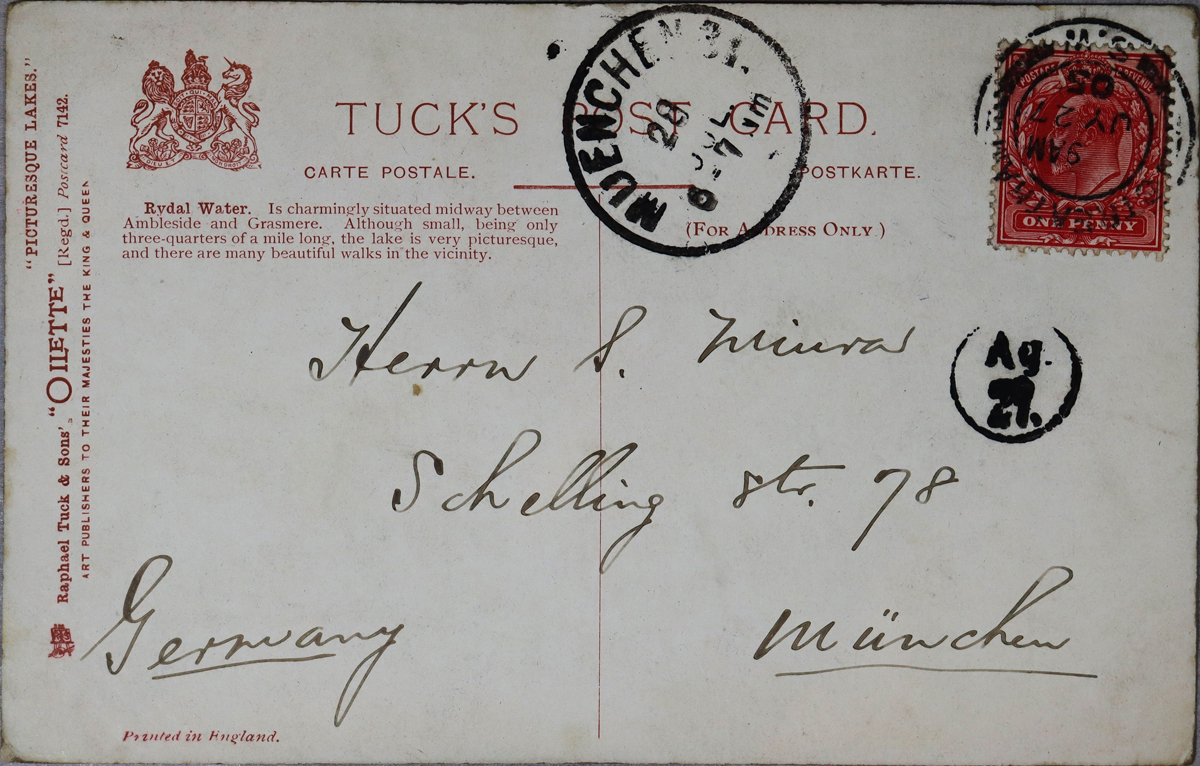 "PICTURESQUE LAKES."
Raphael Tuck & Sons' "OILETTE" [Regd.] Postcard 7142.
ART PUBLISHERS TO THEIR MAJESTIES THE KING & QUEEN
TUCK'S POST CARD.
CARTE POSTALE.
POSTKARTE.
Rydal Water. Is charmingly situated midway between
Ambleside and Grasmere. Although small, being only
three-quarters of a mile long, the lake is very picturesque,
and there are many beautiful walks in the vicinity.
(FOR ADDRESS ONLY)
MUENCHEN 31.
28
JUL
6-7 Nm
S.W
9AM
JY 27
05
POSTAGE REVENUE
ONE PENNY
Ag.
21.
Herrn S. Miura
Schelling str. 78
München
Germany
Printed in England.